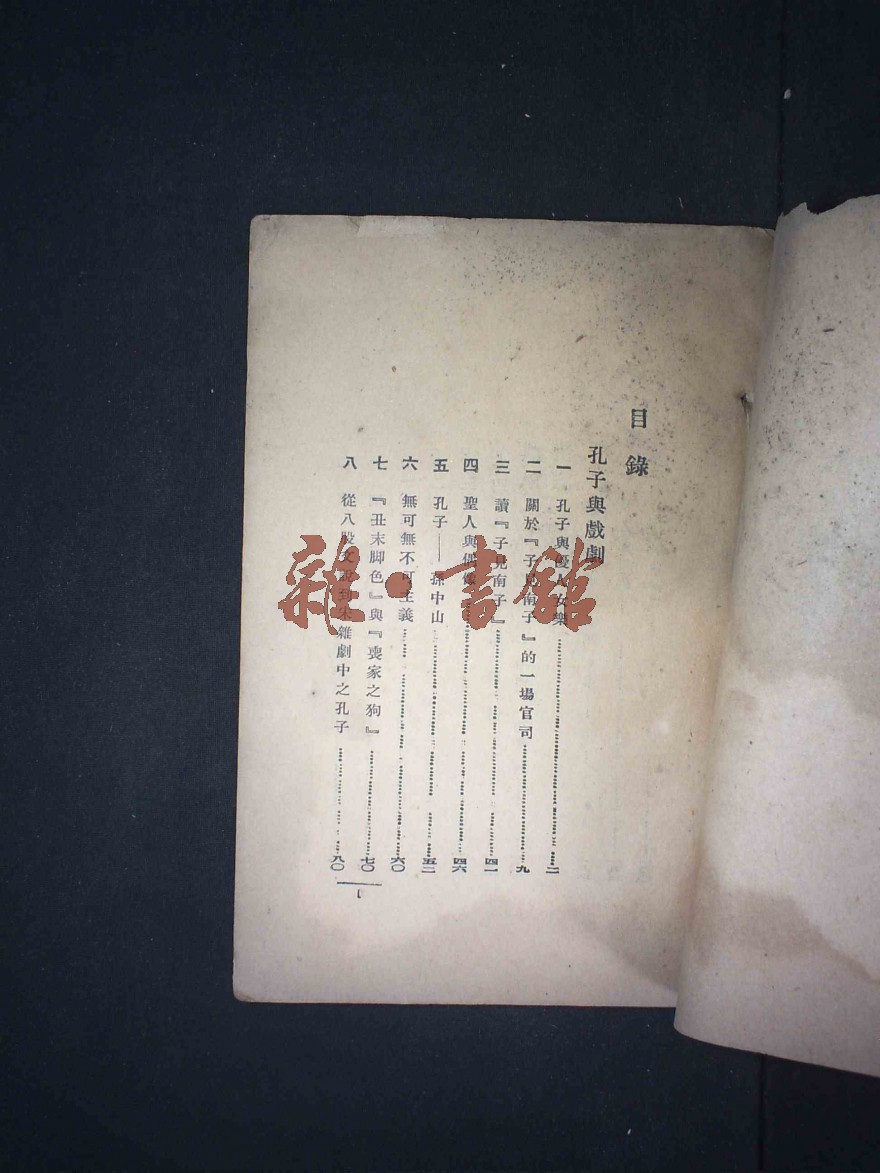 目錄
孔子與戲劇
一 孔子與優人女樂……二
二 關於『子見南子』的一場官司……九
三 讀『子見南子』……四一
四 聖人與偶像……四六
五 孔子——孫中山……五二
六 無可無不可主義……六〇
七 『丑末脚色』與『喪家之狗』……七〇
八 從八股文說到宋雜劇中之孔子……八〇
1
雜·書館